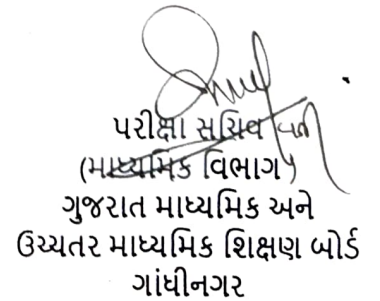 પરીક્ષા સચિવ વતી
(માધ્યમિક વિભાગ)
ગુજરાત માધ્યમિક અને
ઉચ્ચતર માધ્યમિક શિક્ષણ બોર્ડ
ગાંધીનગર